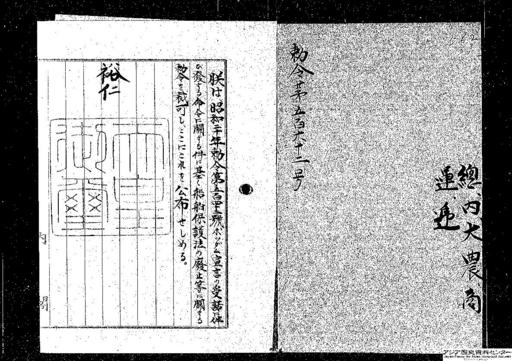 勅令第五百六十二号
總内大農商
運逓
朕は昭和二十年勅令第五百四十二號ポツダム宣言の受諾に伴
ひ發する命令に關する件に基く船舶保護法の廢止等に關する
勅令を裁可し、ここにこれを公布せしめる。
裕仁
内閣
アジア歴史資料センター